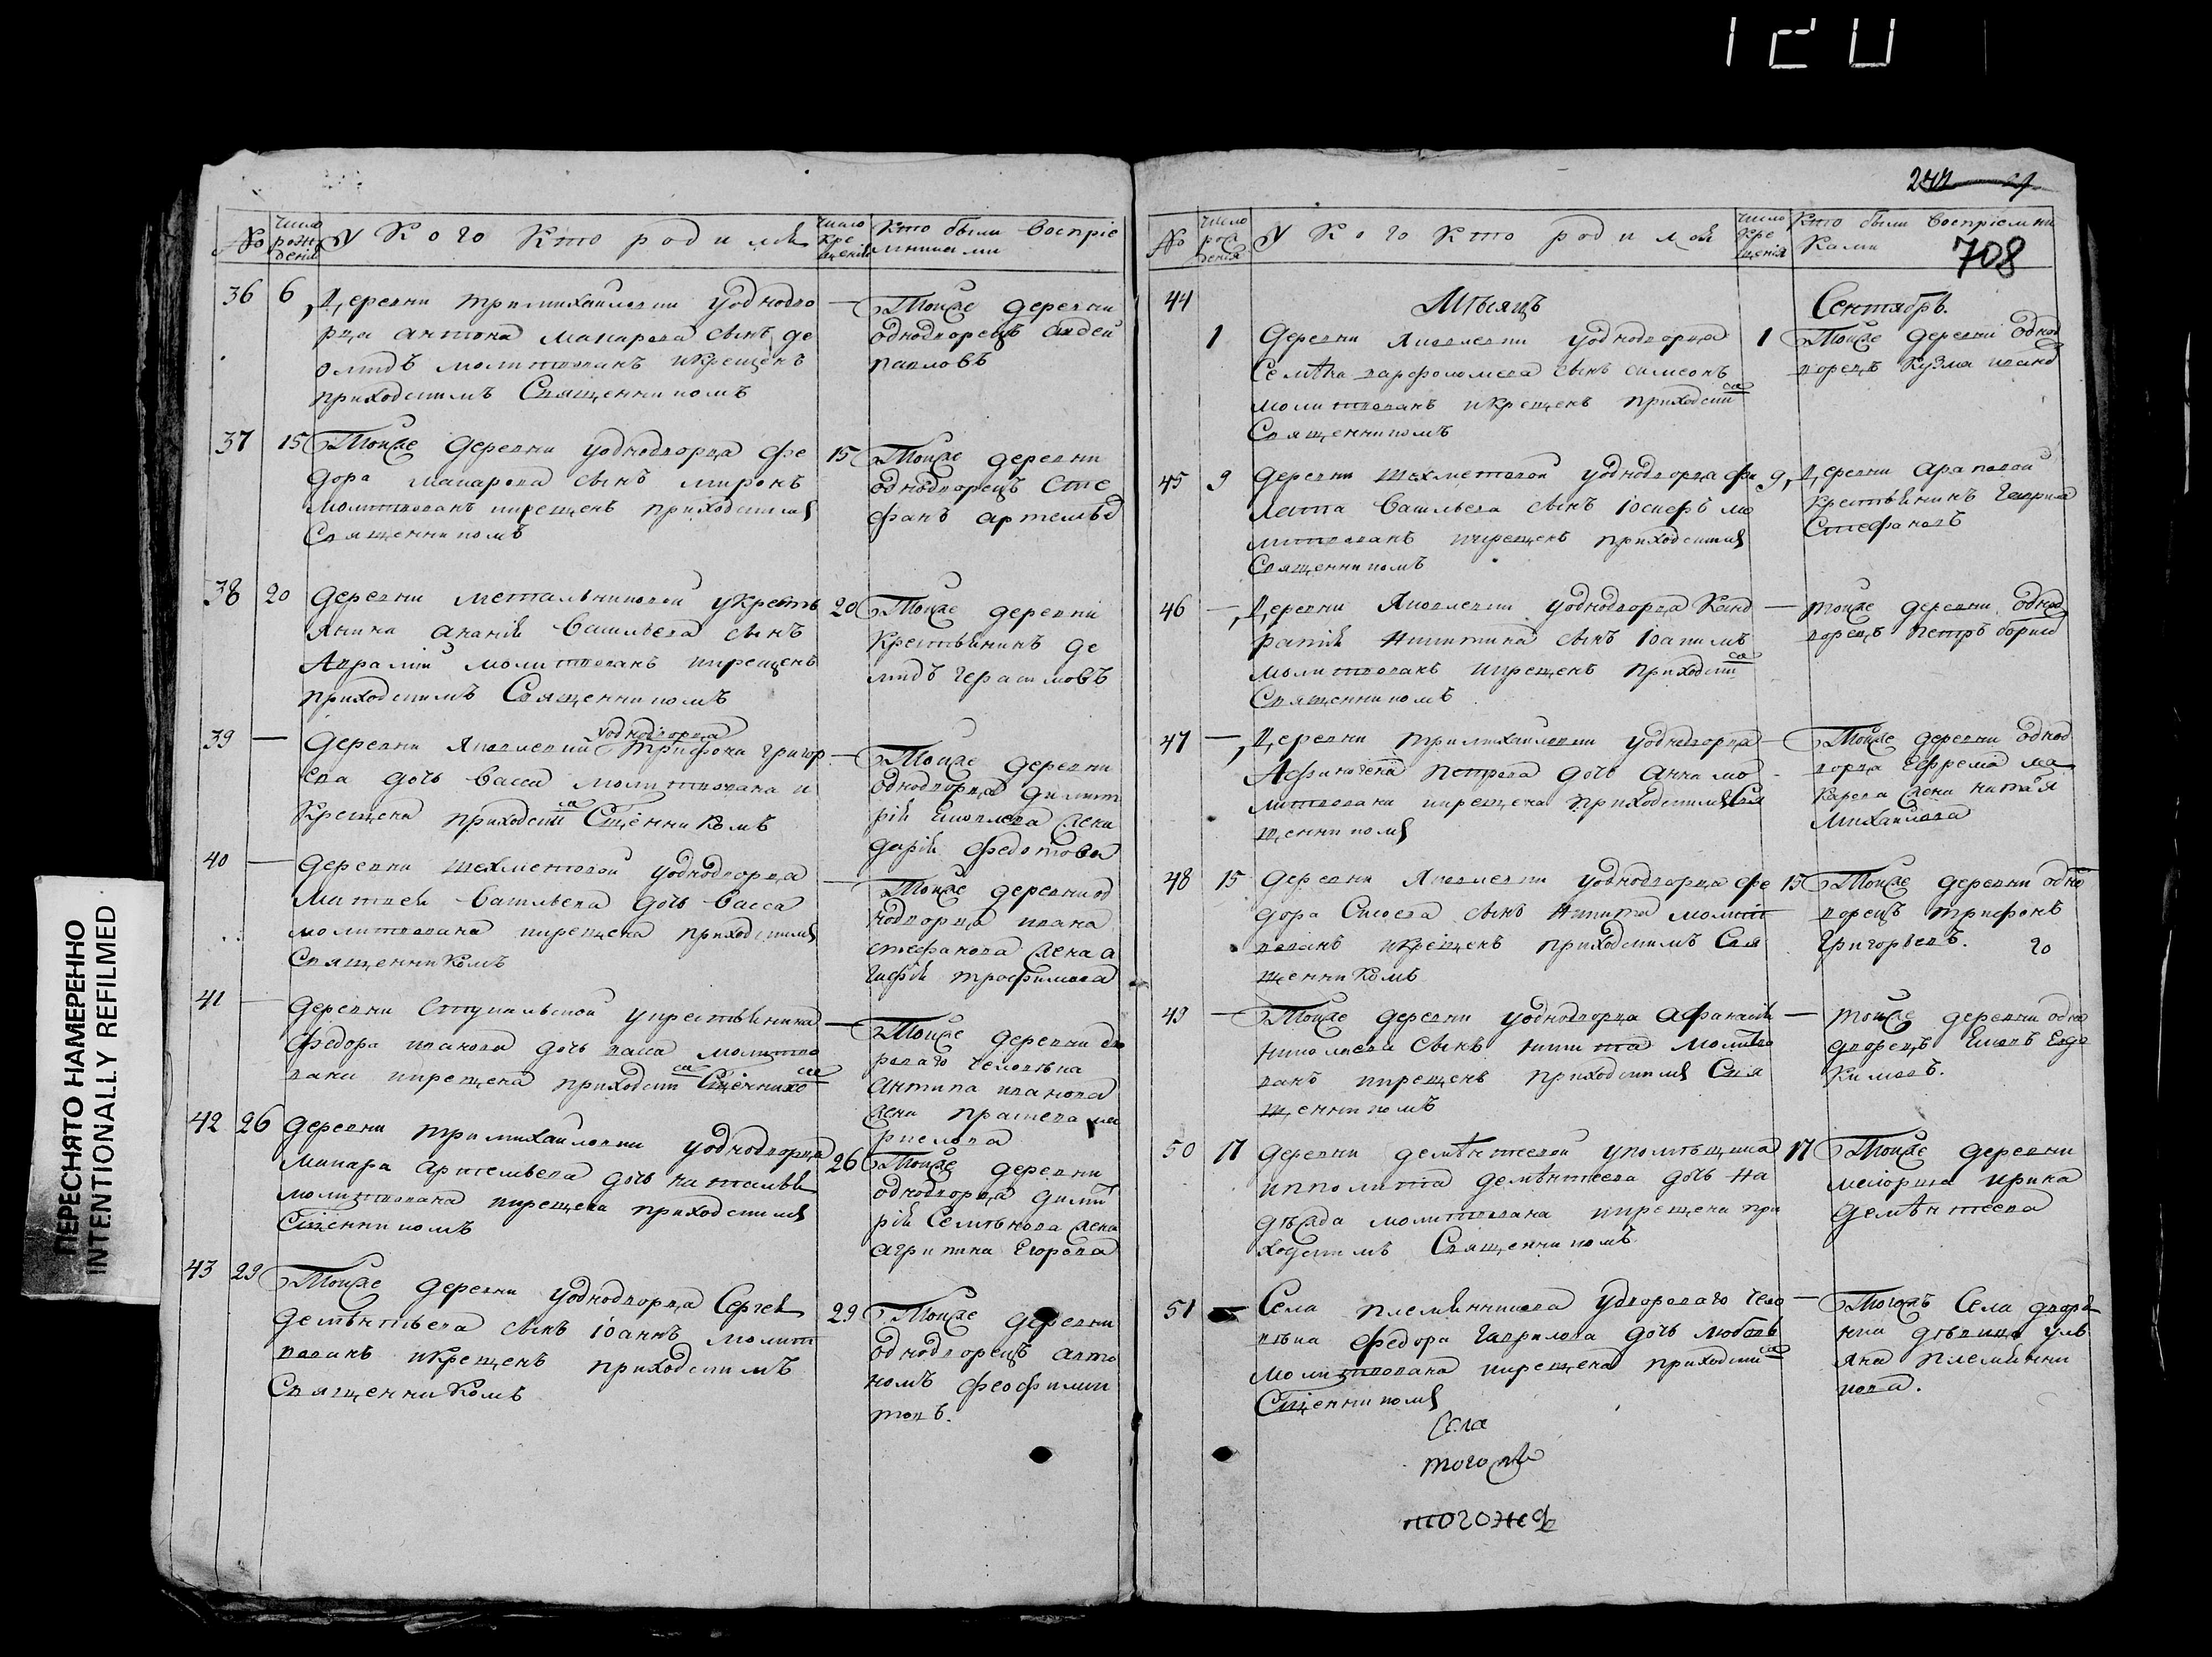 120
ПЕРЕСНЯТО НАМЕРЕННО
INTENTIONALLY REFILMED
№
Число рождения
У Кого Кто родился
Число крещения
Кто были Восприемниками
36 6 Деревни тримихаиловки уоднодво
рца антона макарова сынъ де
омидъ молитвованъ икрещенъ
приходскимъ Священникомъ
— Тойже деревни
однодворецъ авдей
павловъ
37 15 Тойже деревни уоднодворца фе
дора макарова сынъ миронъ
молитвованъ икрещенъ приходскимъ
Священникомъ
15 Тойже деревни
однодворецъ сте
фанъ артемьв
38 20 деревни метальниковой укресть
янина ананiи васильева сынъ
Авралiи молитвованъ икрещенъ
приходскимъ Священникомъ
20 Тойже деревни
крестьянинъ де
мидъ герасимовъ
39 — деревни Яковлевки уоднодворца трифона григор
ева дочь васса молитвована и
крещена приходски Сщенникомъ
— Тойже деревни
однодворца димит
рiя яковлева жена
дарiя федотова
40 — деревни шахметовой уоднодворца
Матвея васильева дочь васса
молитвована икрещена приходскимъ
Священникомъ
— Тойже деревни од
нодворца ивана
стефанова жена а
гафiя трофимова
41 — деревни Ступальской укрестьянина
федора иванова дочь васса молитво
вана икрещена приходски Сщеннико
— Тойже деревни дво
роваго человека
антипа иванова
жена
42 26 деревни тримихаиловки уоднодворца
макара артемьева дочь наталья
молитвована икрещена приходскимъ
Сщенникомъ
26 Тойже деревни
однодворца димит
рiя Семенова жена
агрипина Егорова
43 29 Тойже деревни уоднодворца Сергея
дементьева сынъ iоаннъ молит
вованъ икрещенъ приходскимъ
Священникомъ
29 Тойже деревни
однодворецъ авто
номъ феофилак
товъ.
708
№
Число рождения
У Кого Кто родился
Число крещения
Кто были Восприемниками
44 Мѣсяцъ Сентябрь.
1 деревни Яковлевки уоднодворца
Семѣна варфоломеева сынъ симеонъ
молитвованъ икрещенъ приходски
Священникомъ
1 Тойже деревни однод
ворецъ Кузма иванов
45 9 деревни шахметовой уоднодворца фи
лата васильева сынъ iосифъ мо
литвованъ икрещенъ приходскимъ
Священникомъ
9 Деревни араповой
крестьянинъ гаврила
Стефановъ
46 — Деревни Яковлевки уоднодворца Конд
ратiя Никитина сынъ iоакимъ
молитвованъ икрещенъ приходски
Священникомъ
— тойже деревни однод
ворецъ петръ борисов
47 — Деревни тримихаиловки уоднодворца
Афиногена петрова дочь анна мо
литвована икрещена приходскимъ Свя
щенникомъ
— Тойже деревни однод
ворца Ефрема ма
карова жена
Михаилова
48 15 деревни Яковлевки уоднодворца фе
дора Сысоева сынъ никита молит
вованъ икрещенъ приходскимъ Свя
щенникомъ
15 Тойже деревни одно
ворецъ трифонъ
григорьевъ. 20
49 — Тойже деревни уоднодворца афанасiя
николаева сынъ никита молитво
ванъ икрещенъ приходскимъ Свя
щенникомъ
— тойже деревни одно
дворецъ яковъ Евдо
кимовъ.
50 17 деревни дементеевой упомѣщика
ипполита дементеева дочь На
дѣжда молитвована икрещена при
ходскимъ Священникомъ
17 Тойже деревни
маiорша ирина
дементеева
51 — Села племянникова удвороваго чело
вѣка федора гаврилова дочь любовь
молитвована икрещена приходски
Сщенникомъ
— Тогожъ Села дворя
нка дѣвица уль
яна племянни
кова.
Села
тогожъ
тогожъ